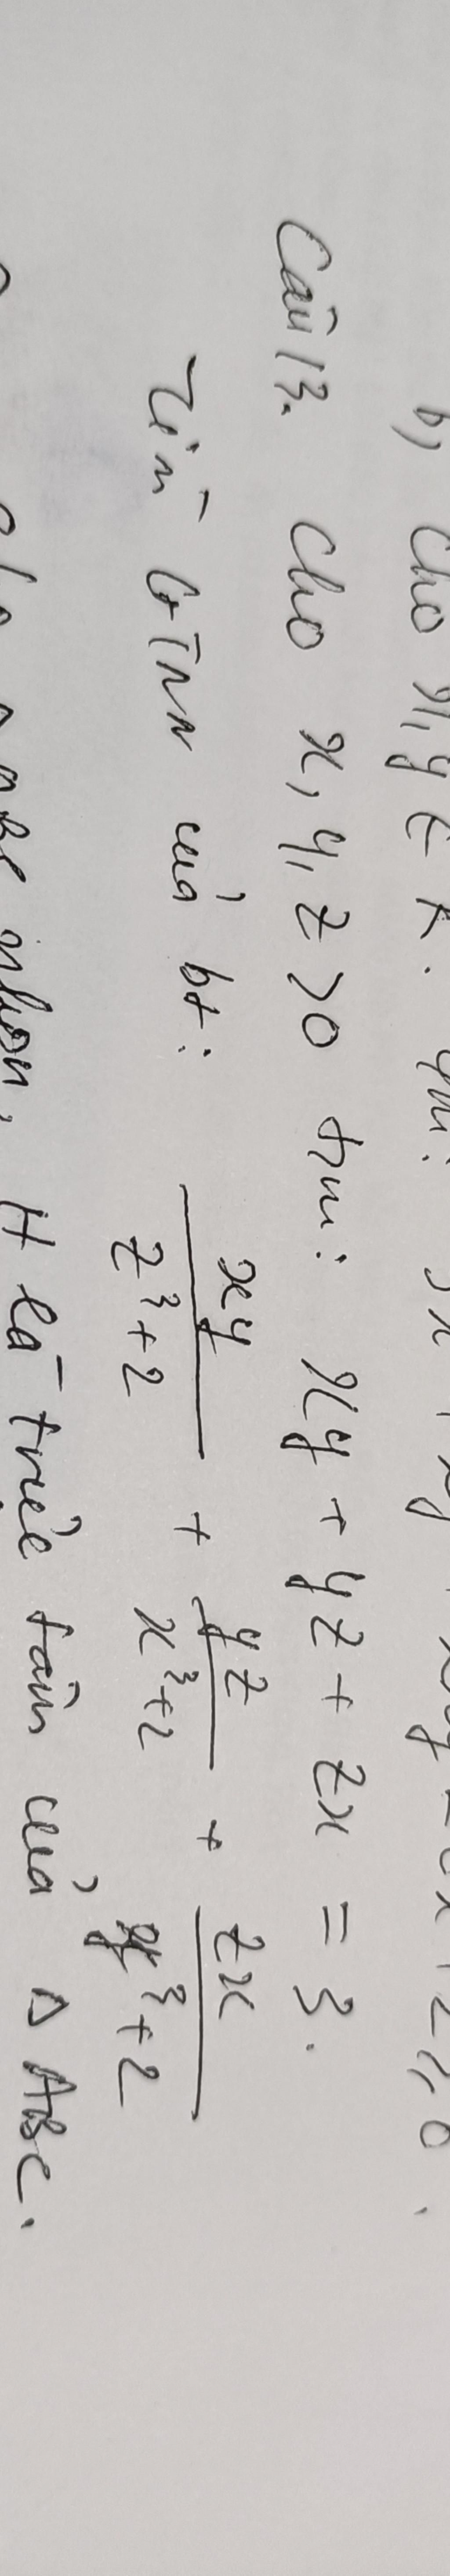 b) Cho x, y ∈ R.
Câu 13. Cho x, y, z > 0 tm: xy + yz + zx = 3.
Tìm GTNN của bt: \frac{xy}{z^3+2} + \frac{yz}{x^3+2} + \frac{zx}{y^3+2}
nhọn, H là trực tâm của Δ ABC.